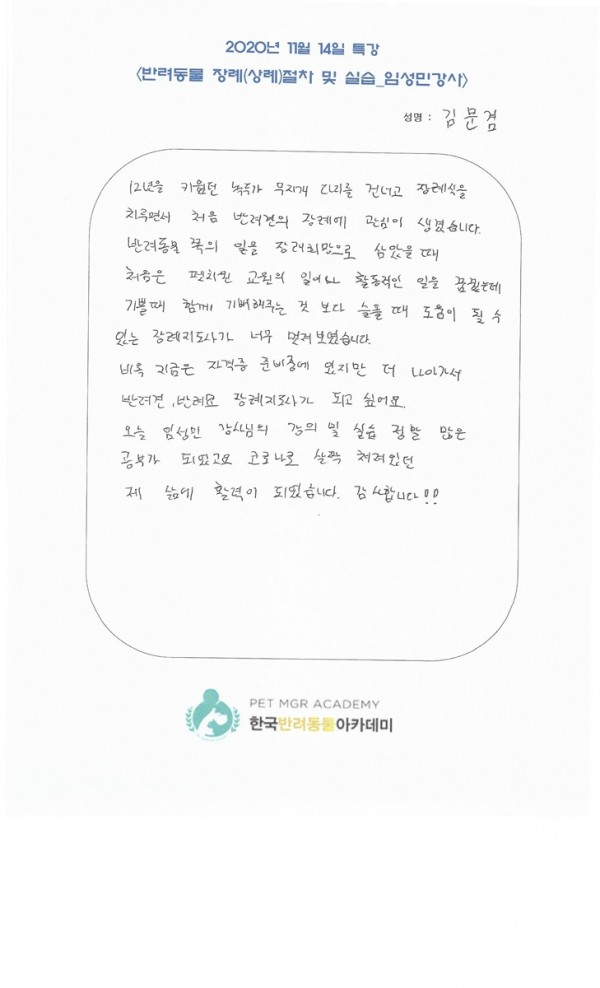 2020년 11월 14일 특강
<반려동물 장례(상례)절차 및 실습_임성민강사>
성명 : 김문겸
12년을 키웠던 녹두가 무지개 다리를 건너고 장례식을
치루면서 처음 반려견의 장례에 관심이 생겼습니다.
반려동물 쪽의 일을 장래희망으로 삼았을 때
처음은 펫시터 교원의 일이나 활동적인 일을 꿈꿨는데
기쁠때 함께 기뻐해주는 것 보다 슬플 때 도움이 될 수
있는 장례지도사가 너무 멋져보였습니다.
비록 지금은 자격증 준비중에 있지만 더 나아가서
반려견, 반려묘 장례지도사가 되고 싶어요.
오늘 임성민 강사님의 강의 및 실습 정말 많은
공부가 되었고요 코로나로 살짝 쳐져있던
제 삶에 활력이 되었습니다. 감사합니다!!
PET MGR ACADEMY
한국반려동물아카데미